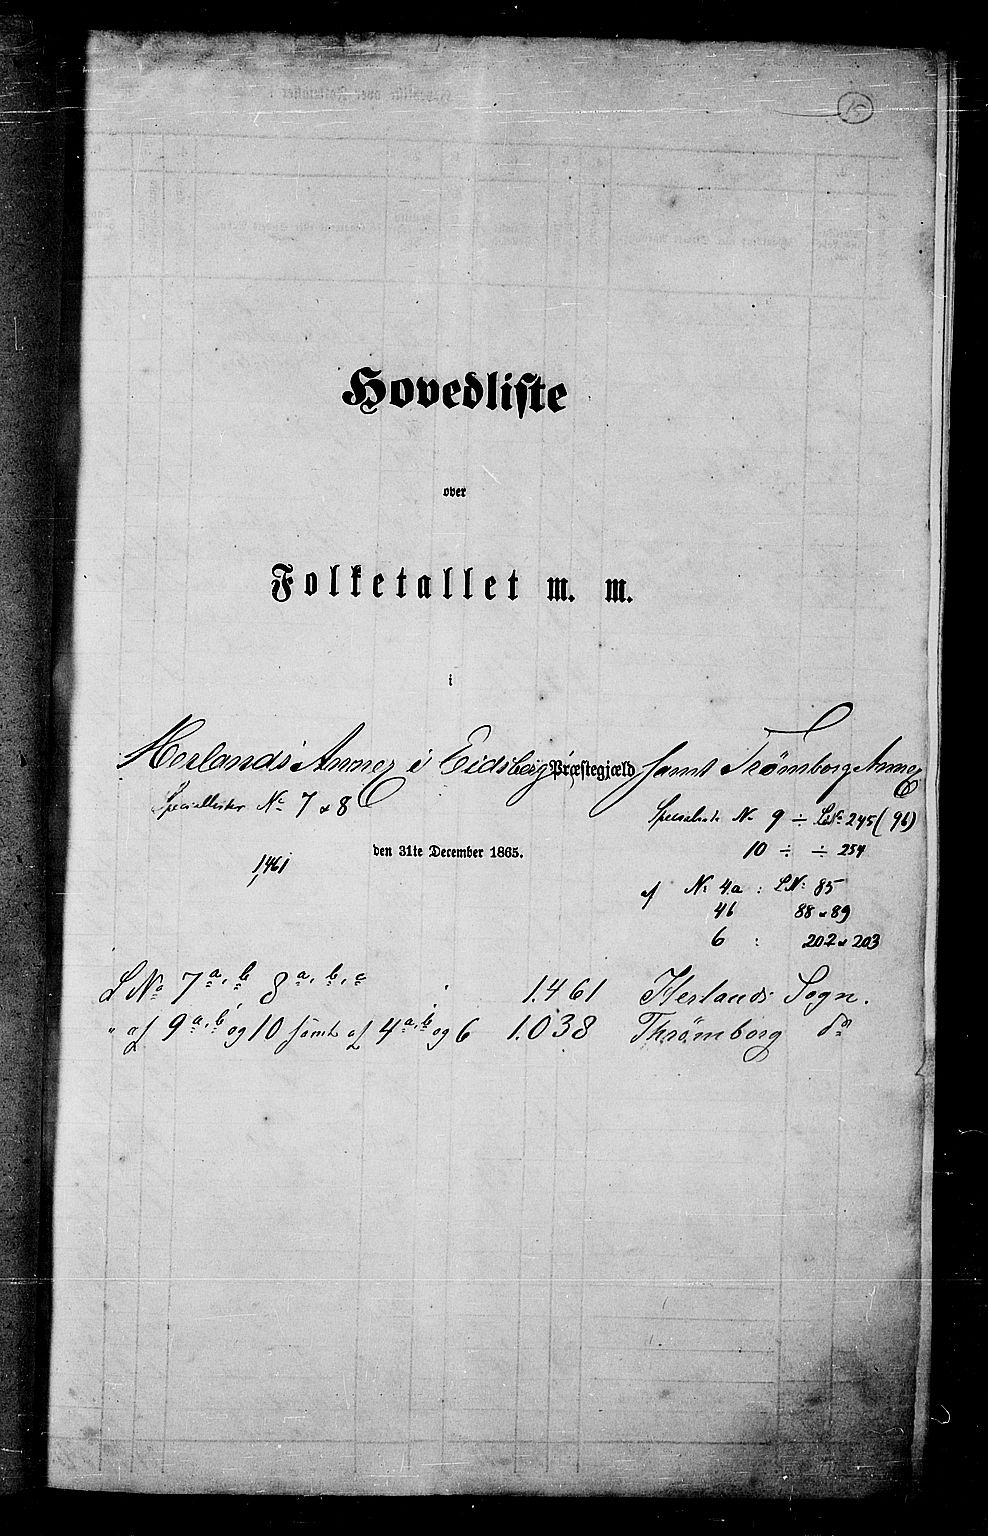 15
Hovedliste
over
Folketallet m. m.
i
Herlands Annex i Eidsberg Præstegjæld samt Trømborg Annex
Speciallister No 7 & 8
Specialliste No 9 ÷ LNo 245 (96)
10 ÷ ÷ 254
den 31te December 1865.
1,461
af No 4a : LNo 85
4b 88 & 89
6 : 202 & 203
LNo 7 a, b 8 a, b, c 1.461 Herlands Sogn.
" af 9 a, b og 10 samt af 4 a, b og 6 1.038 Thrømborg do